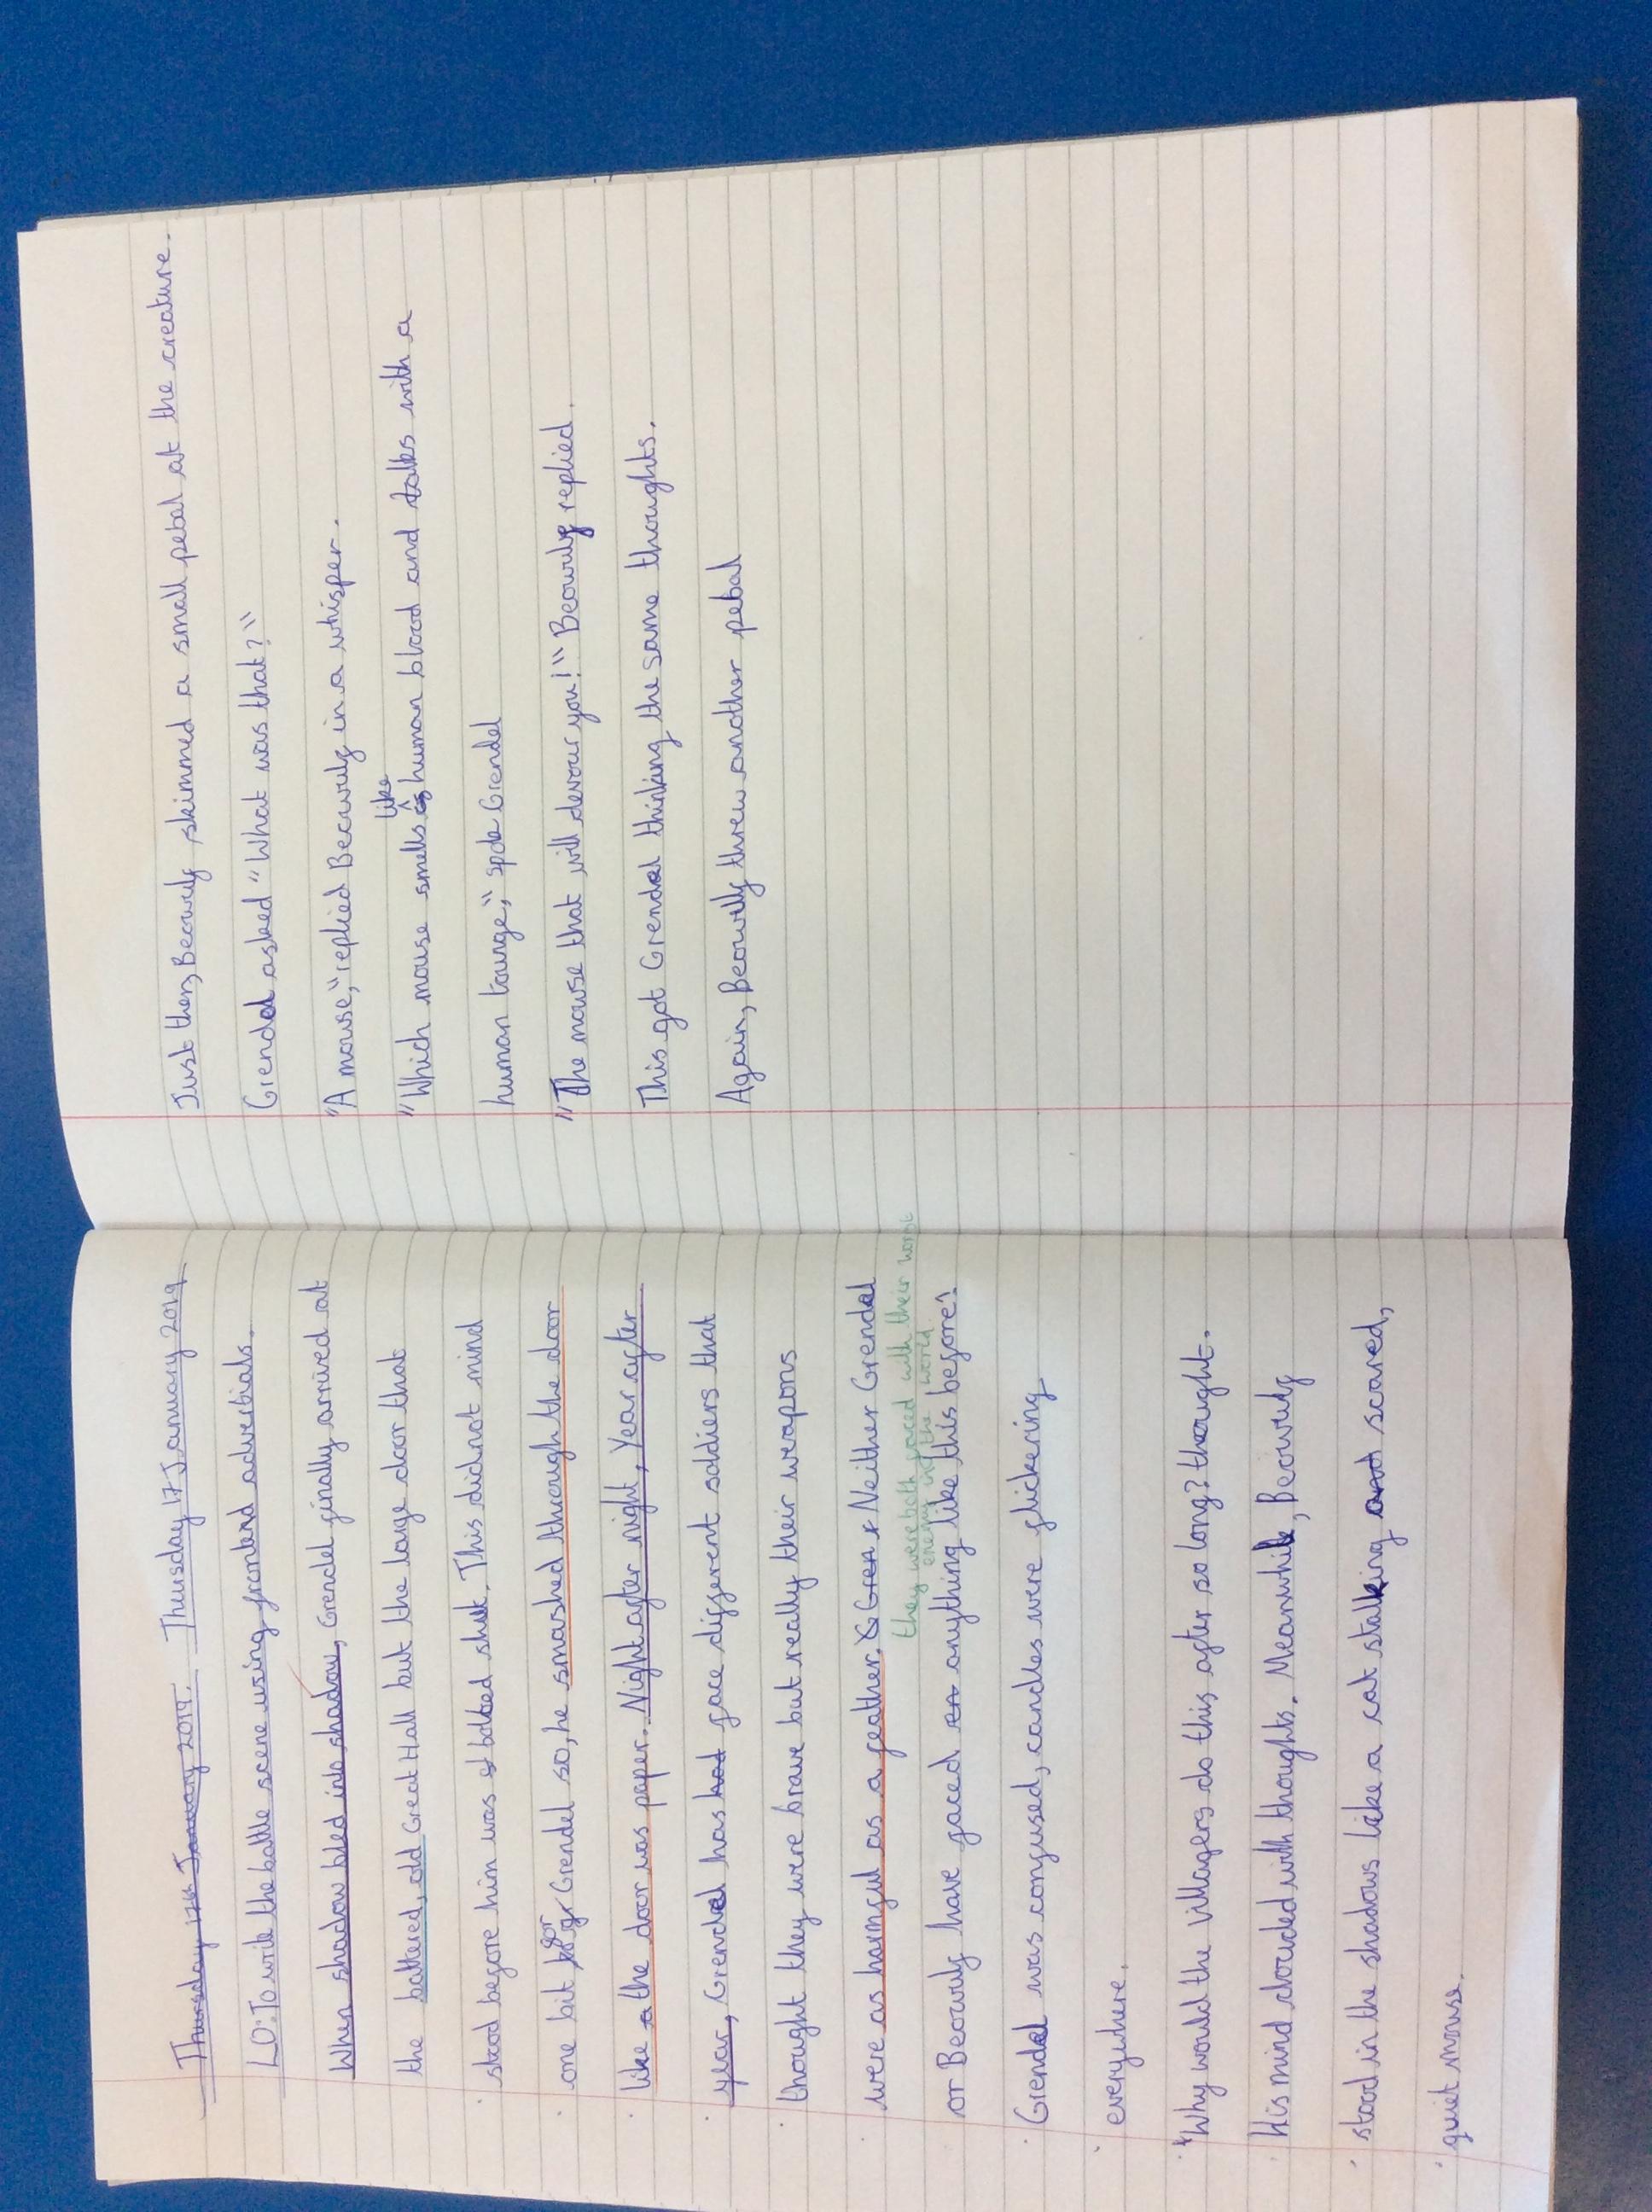 Thursday 17th January 2019. Thursday 17 January 2019
LO: To write the battle scene using fronted adverbials.
When shadow bled into shadow, Grendel finally arrived at
the battered, old Great Hall but the large door that
stood before him was bolted shut. This did not mind
one bit for Grendel so, he smashed through the door
like a the door was paper. Night after night, Year after
year, Grendel has had face different soldiers that
thought they were brave but really their weapons
were as harmful as a feather. & Gren Neither Grendel
they were both faced with their worst
enemy in the world.
or Beowulf have faced an anything like this before!
Grendel was confused, candles were flickering
everywhere.
"Why would the villagers do this after so long? thought.
His mind clouded with thoughts. Meanwhile, Beowulf
stood in the shadows like a cat stalking and scared,
quiet mouse.
Just then, Beowulf skimmed a small pebal at the creature.
Grendel asked "What was that?"
"A mouse," replied Beowulf in a whisper.
like
"Which mouse smells as human blood and talks with a
human tounge," spoke Grendel
"The mouse that will devour you!" Beowulf replied.
This got Grendel thinking the same thoughts.
Again, Beowulf threw another pebal